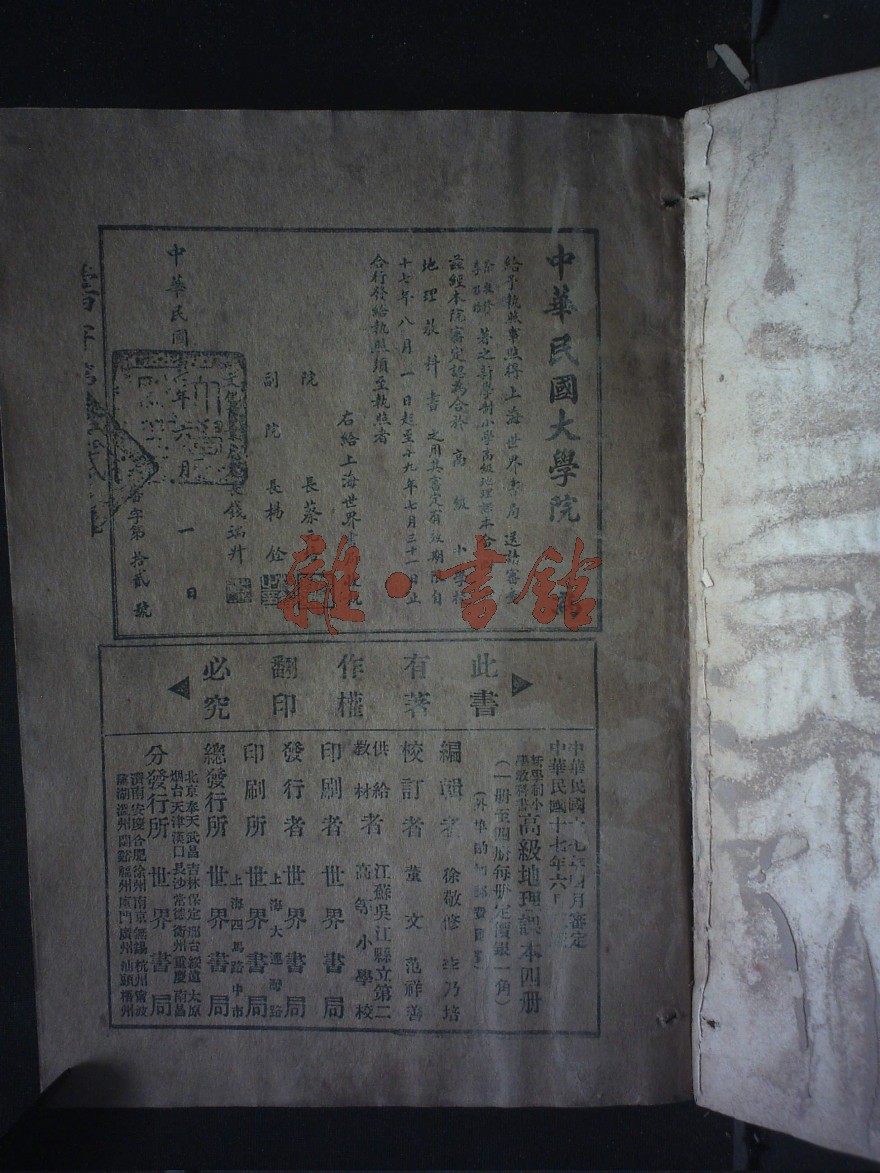 中華民國大學院
給予執照事照得上海世界書局送請審查
徐敬修
著之新學制小學高級地理課本合
茲經本院審定認為合於高級小學校
地理教科書之用其審定有效期限自
十七年八月一日起至十九年七月三十一日止
合行發給執照須至執照者
右給上海世界書
院長蔡
副院長楊銓
長錢端升
中華民國
年六月一日
審字第拾貳號
雜·書館
此書有著作權翻印必究
中華民國十七年
月審定
中華民國十七年六月
新學制小學教科書高級地理課本四册
(一册至四册每册定價銀一角)
(外埠酌加郵費匯費)
編輯者 徐敬修
乃培
校訂者 董文 范祥善
供給教材者 江蘇吳江縣立第二高等小學校
印刷者 世界書局
發行者 世界書局
印刷所 上海大連灣路 世界書局
總發行所 上海四馬路中市 世界書局
分發行所 世界書局
北京奉天武昌吉林保定邢台綏遠太原
烟台天津漢口長沙常德衢州重慶南昌
濟南安慶合肥徐州南京無錫杭州甯波
蕪湖溫州蘭谿福州廈門廣州汕頭梧州